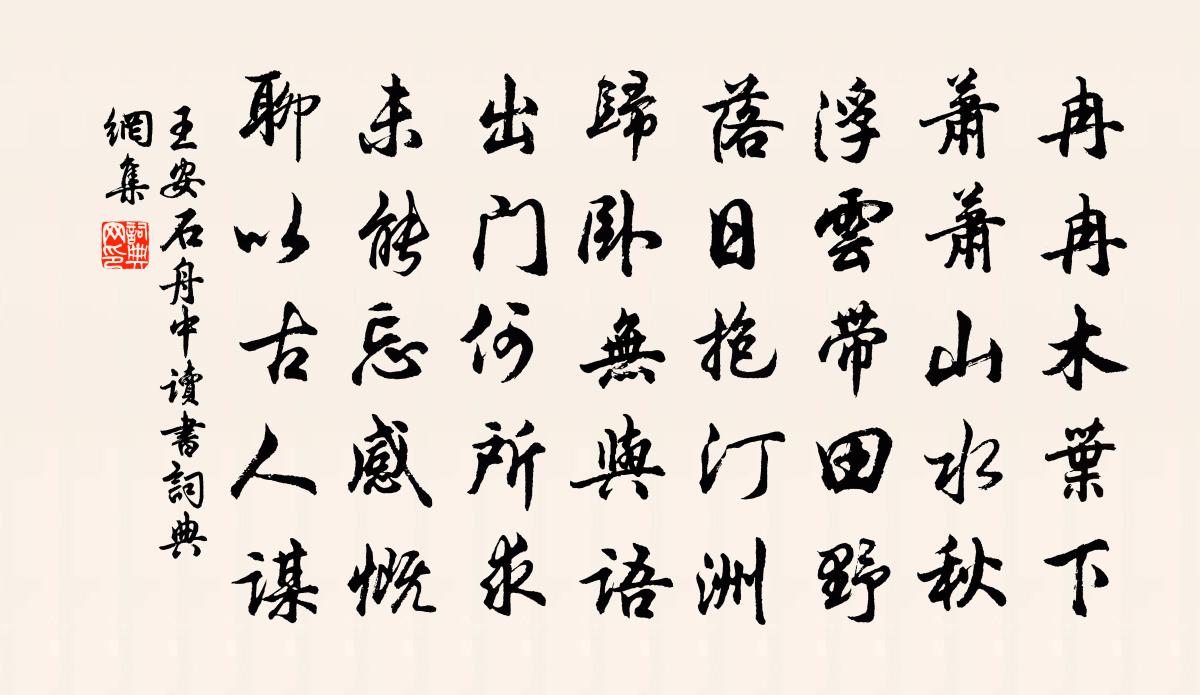 冉冉木葉下
蕭蕭山水秋
浮雲帶田野
落日抱汀洲
歸臥無與語
出门何所求
未能忘感慨
聊以古人謀
王安石舟中讀書詞典
網集
詞典
网印